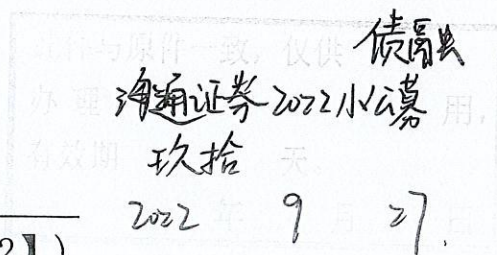 与原件一致，仅供 债融
办理 海通证券2022小公募 用，
有效期 玖拾 天。
2022 年 9 月 27 日
2】)